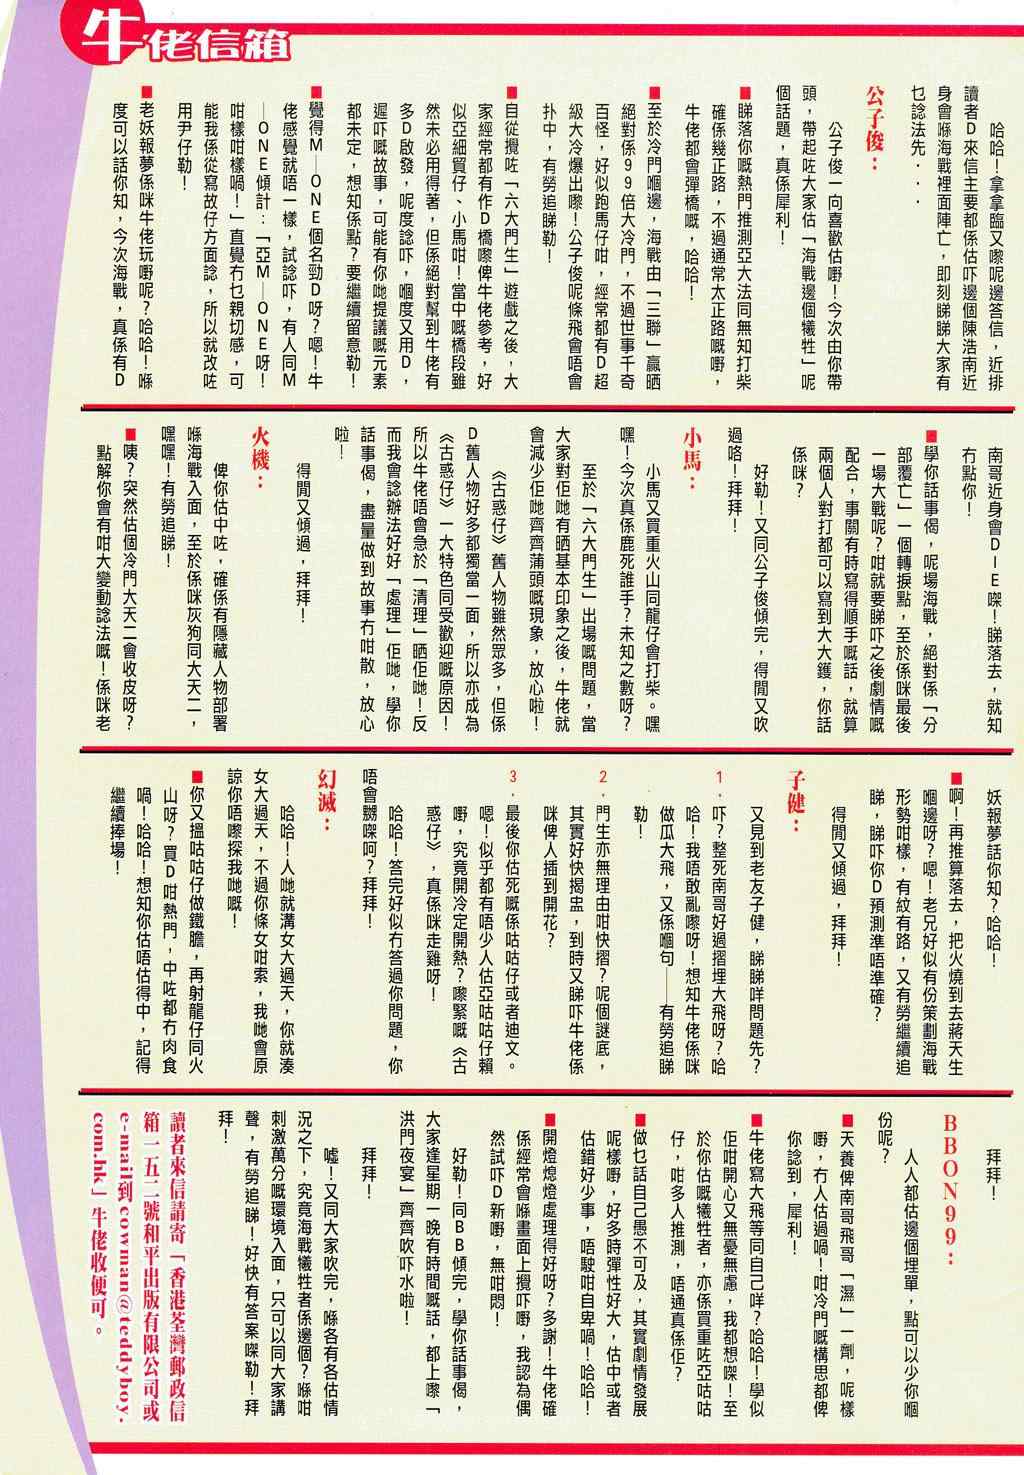 牛佬信箱
哈哈！拿拿臨又嚟呢邊答信，近排
讀者D來信主要都係估吓邊個陳浩南近
身會喺海戰裡面陣亡，即刻睇睇大家有
乜諗法先．．．
公子俊：
公子俊一向喜歡估嘢！今次由你帶
頭，帶起咗大家估「海戰邊個犧牲」呢
個話題，真係犀利！
■睇落你嘅熱門推測亞大法同無知打柴
確係幾正路，不過通常太正路嘅嘢，
牛佬都會彈橋嘅，哈哈！
■至於冷門嗰邊，海戰由「三聯」贏晒
絕對係９９倍大冷門，不過世事千奇
百怪．好似跑馬仔咁，經常都有D超
級大冷爆出嚟！公子俊呢條飛會唔會
扑中，有勞追睇勒！
■自從攪咗「六大門生」遊戲之後，大
家經常都有作D橋嚟俾牛佬參考，好
似亞細賀仔、小馬咁！當中嘅橋段雖
然未必用得著，但係絕對幫到牛佬有
多D啟發，呢度諗吓，嗰度又用D，
遲吓嘅故事，可能有你哋提議嘅元素
都未定，想知係點？要繼續留意勒！
■覺得M—ONE個名勁D呀？嗯！牛
佬感覺就唔一樣，試諗吓，有人同M
—ONE傾計：「亞M—ONE呀！
咁樣咁樣喎！」直覺冇乜親切感，可
能我係從寫故仔方面諗，所以就改咗
用尹仔勒！
■老妖報夢係咪牛佬玩嘢呢？哈哈！喺
度可以話你知，今次海戰，真係有D
南哥近身會DIE㗎！睇落去，就知
冇點你！
■學你話事偈，呢場海戰，絕對係「分
部覆亡」一個轉捩點，至於係咪最後
一場大戰呢？咁就要睇吓之後劇情嘅
配合，事關有時寫得順手嘅話，就算
兩個人對打都可以寫到大大鑊，你話
係咪？
好勒！又同公子俊傾完，得閒又吹
過咯！拜拜！
小馬：
小馬又買重火山同龍仔會打柴。嘿
嘿！今次真係鹿死誰手？未知之數呀？
至於「六大門生」出場嘅問題，當
大家對佢哋有晒基本印象之後，牛佬就
會減少佢哋齊齊蒲頭嘅現象，放心啦！
《古惑仔》舊人物雖然眾多，但係
D舊人物好多都獨當一面，所以亦成為
《古惑仔》一大特色同受歡迎嘅原因！
所以牛佬唔會急於「清理」晒佢哋！反
而我會諗辦法好好「處理」佢哋，學你
話事偈，盡量做到故事冇咁散，放心
啦！
得閒又傾過，拜拜！
火機：
俾你估中咗，確係有隱藏人物部署
喺海戰入面，至於係咪灰狗同大天二，
嘿嘿！有勞追睇！
■咦？突然估個冷門大天二會收皮呀？
點解你會有咁大變動諗法嘅！係咪老
妖報夢話你知？哈哈！
■啊！再推算落去，把火燒到去蔣天生
嗰邊呀？嗯！老兄好似有份策劃海戰
形勢咁樣，有紋有路，又有勞繼續追
睇，睇吓你D預測準唔準確？
得閒又傾過，拜拜！
子健：
又見到老友子健，睇睇咩問題先？
1．吓？整死南哥好過摺埋大飛呀？哈
哈！我唔敢亂嚟呀！想知牛佬係咪
做瓜大飛，又係嗰句——有勞追睇
勒！
2．門生亦無理由咁快摺？呢個謎底，
其實好快揭盅，到時又睇吓牛佬係
咪俾人插到開花？
3．最後你估死嘅係咕咕仔或者迪文。
嗯！似乎都有唔少人估亞咕咕仔賴
嘢，究竟開冷定開熱？嚟緊嘅《古
惑仔》，真係咪走雞呀！
哈哈！答完好似冇答過你問題，你
唔會嬲㗎呵？拜拜！
幻滅：
哈哈！人哋就溝女大過天，你就湊
女大過天，不過你條女咁索，我哋會原
諒你唔嚟探我哋嘅！
■你又搵咕咕仔做鐵膽，再射龍仔同火
山呀？買D咁熱門，中咗都冇肉食
喎！哈哈！想知你估唔估得中，記得
繼續捧場！
拜拜！
BBON99：
人人都估邊個埋單，點可以少你嗰
份呢？
■天養俾南哥飛哥「濕」一劑，呢樣
嘢，冇人估過喎！咁冷門嘅構思都俾
你諗到，犀利！
■牛佬寫大飛等同自己咩？哈哈！學似
佢咁開心又無憂無慮，我都想㗎！至
於你估嘅犧牲者，亦係買重咗亞咕咕
仔，咁多人推測，唔通真係佢？
■做乜話自己愚不可及，其實劇情發展
呢樣嘢，好多時彈性好大，估中或者
估錯好少事，唔駛咁自卑喎！哈哈！
■開燈熄燈處理得好呀？多謝！牛佬確
係經常會喺畫面上攪吓嘢，我認為偶
然試吓D新嘢，無咁悶！
好勒！同BB傾完，學你話事偈，
大家逢星期一晚有時間嘅話，都上嚟「
洪門夜宴」齊齊吹吓水啦！
拜拜！
噓！又同大家吹完，喺各有各估情
況之下，究竟海戰犧牲者係邊個？喺咁
刺激萬分嘅環境入面，只可以同大家講
聲，有勞追睇！好快有答案㗎勒！拜
拜！
讀者來信請寄「香港荃灣郵政信
箱一五二號和平出版有限公司或
e-mail到cowman@teddyboy.
com.hk」牛佬收便可。